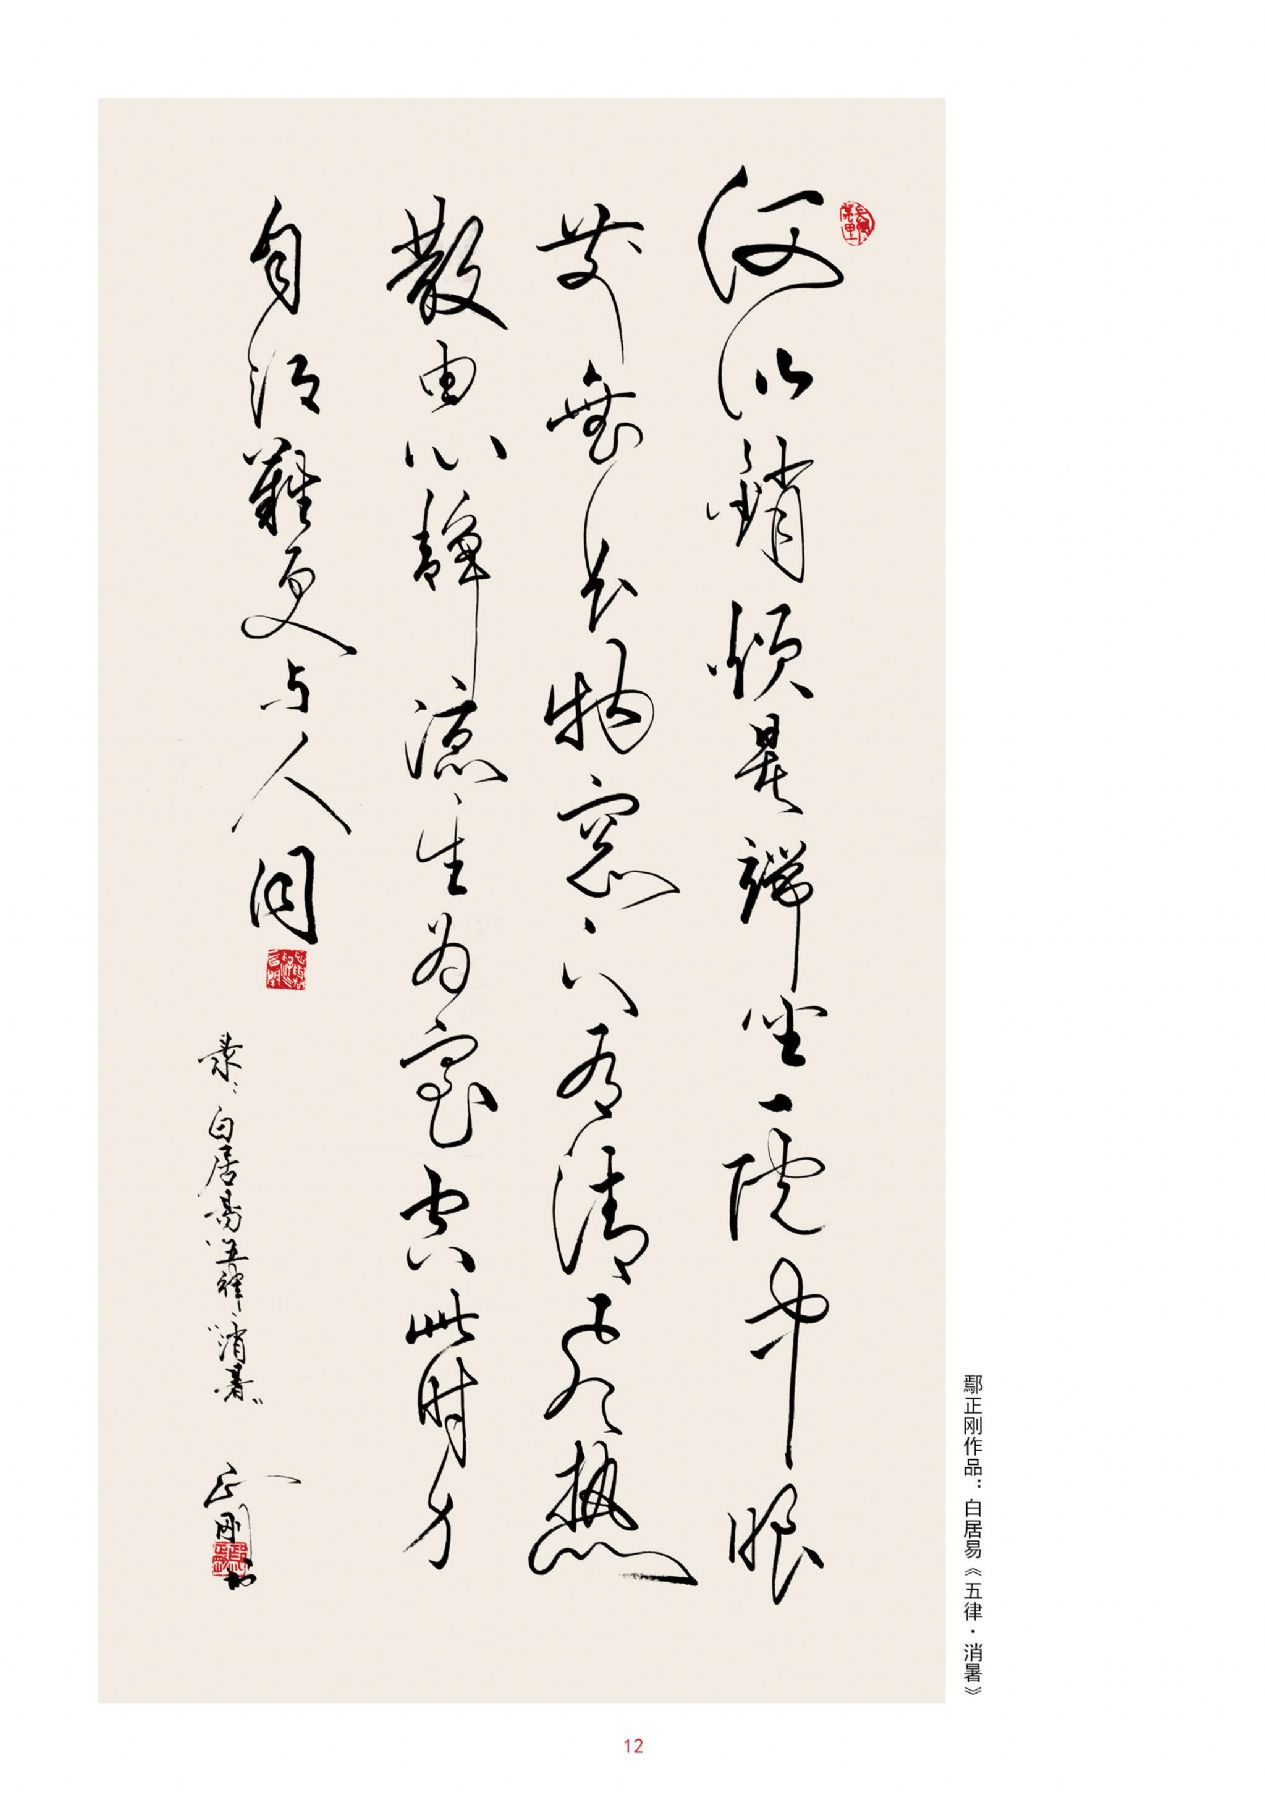 何以销烦暑端坐一院中眼
前無长物窓下有清风热
散由心静凉生为室空此时身
自得難更与人同
录：白居易五律“消暑”
正刚书
鄢正刚作品：白居易《五律·消暑》
12